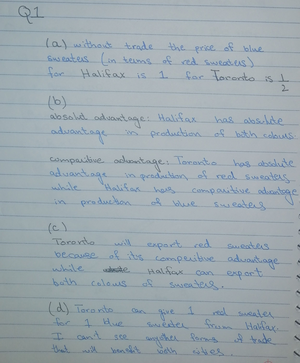 Q1
(a) without trade the price of blue
sweaters (in terms of red sweaters)
for Halifax is 1 for Toronto is 1/2
(b)
absolut advantage: Halifax has absolute
advantage in production of both colours
comparitive advantage: Toronto has absolute
advantage in production, of red sweaters
while Halifax has comparitive advantage
in production of blue sweaters
(c)
Toronto will export red sweaters
because of its comparitive advantage
while Halifax can export
both colours of sweaters.
(d) Toronto can give 1 red sweater
for 1 blue sweater from Halifax.
I can't see another forms of trade
that will benefit both cities.